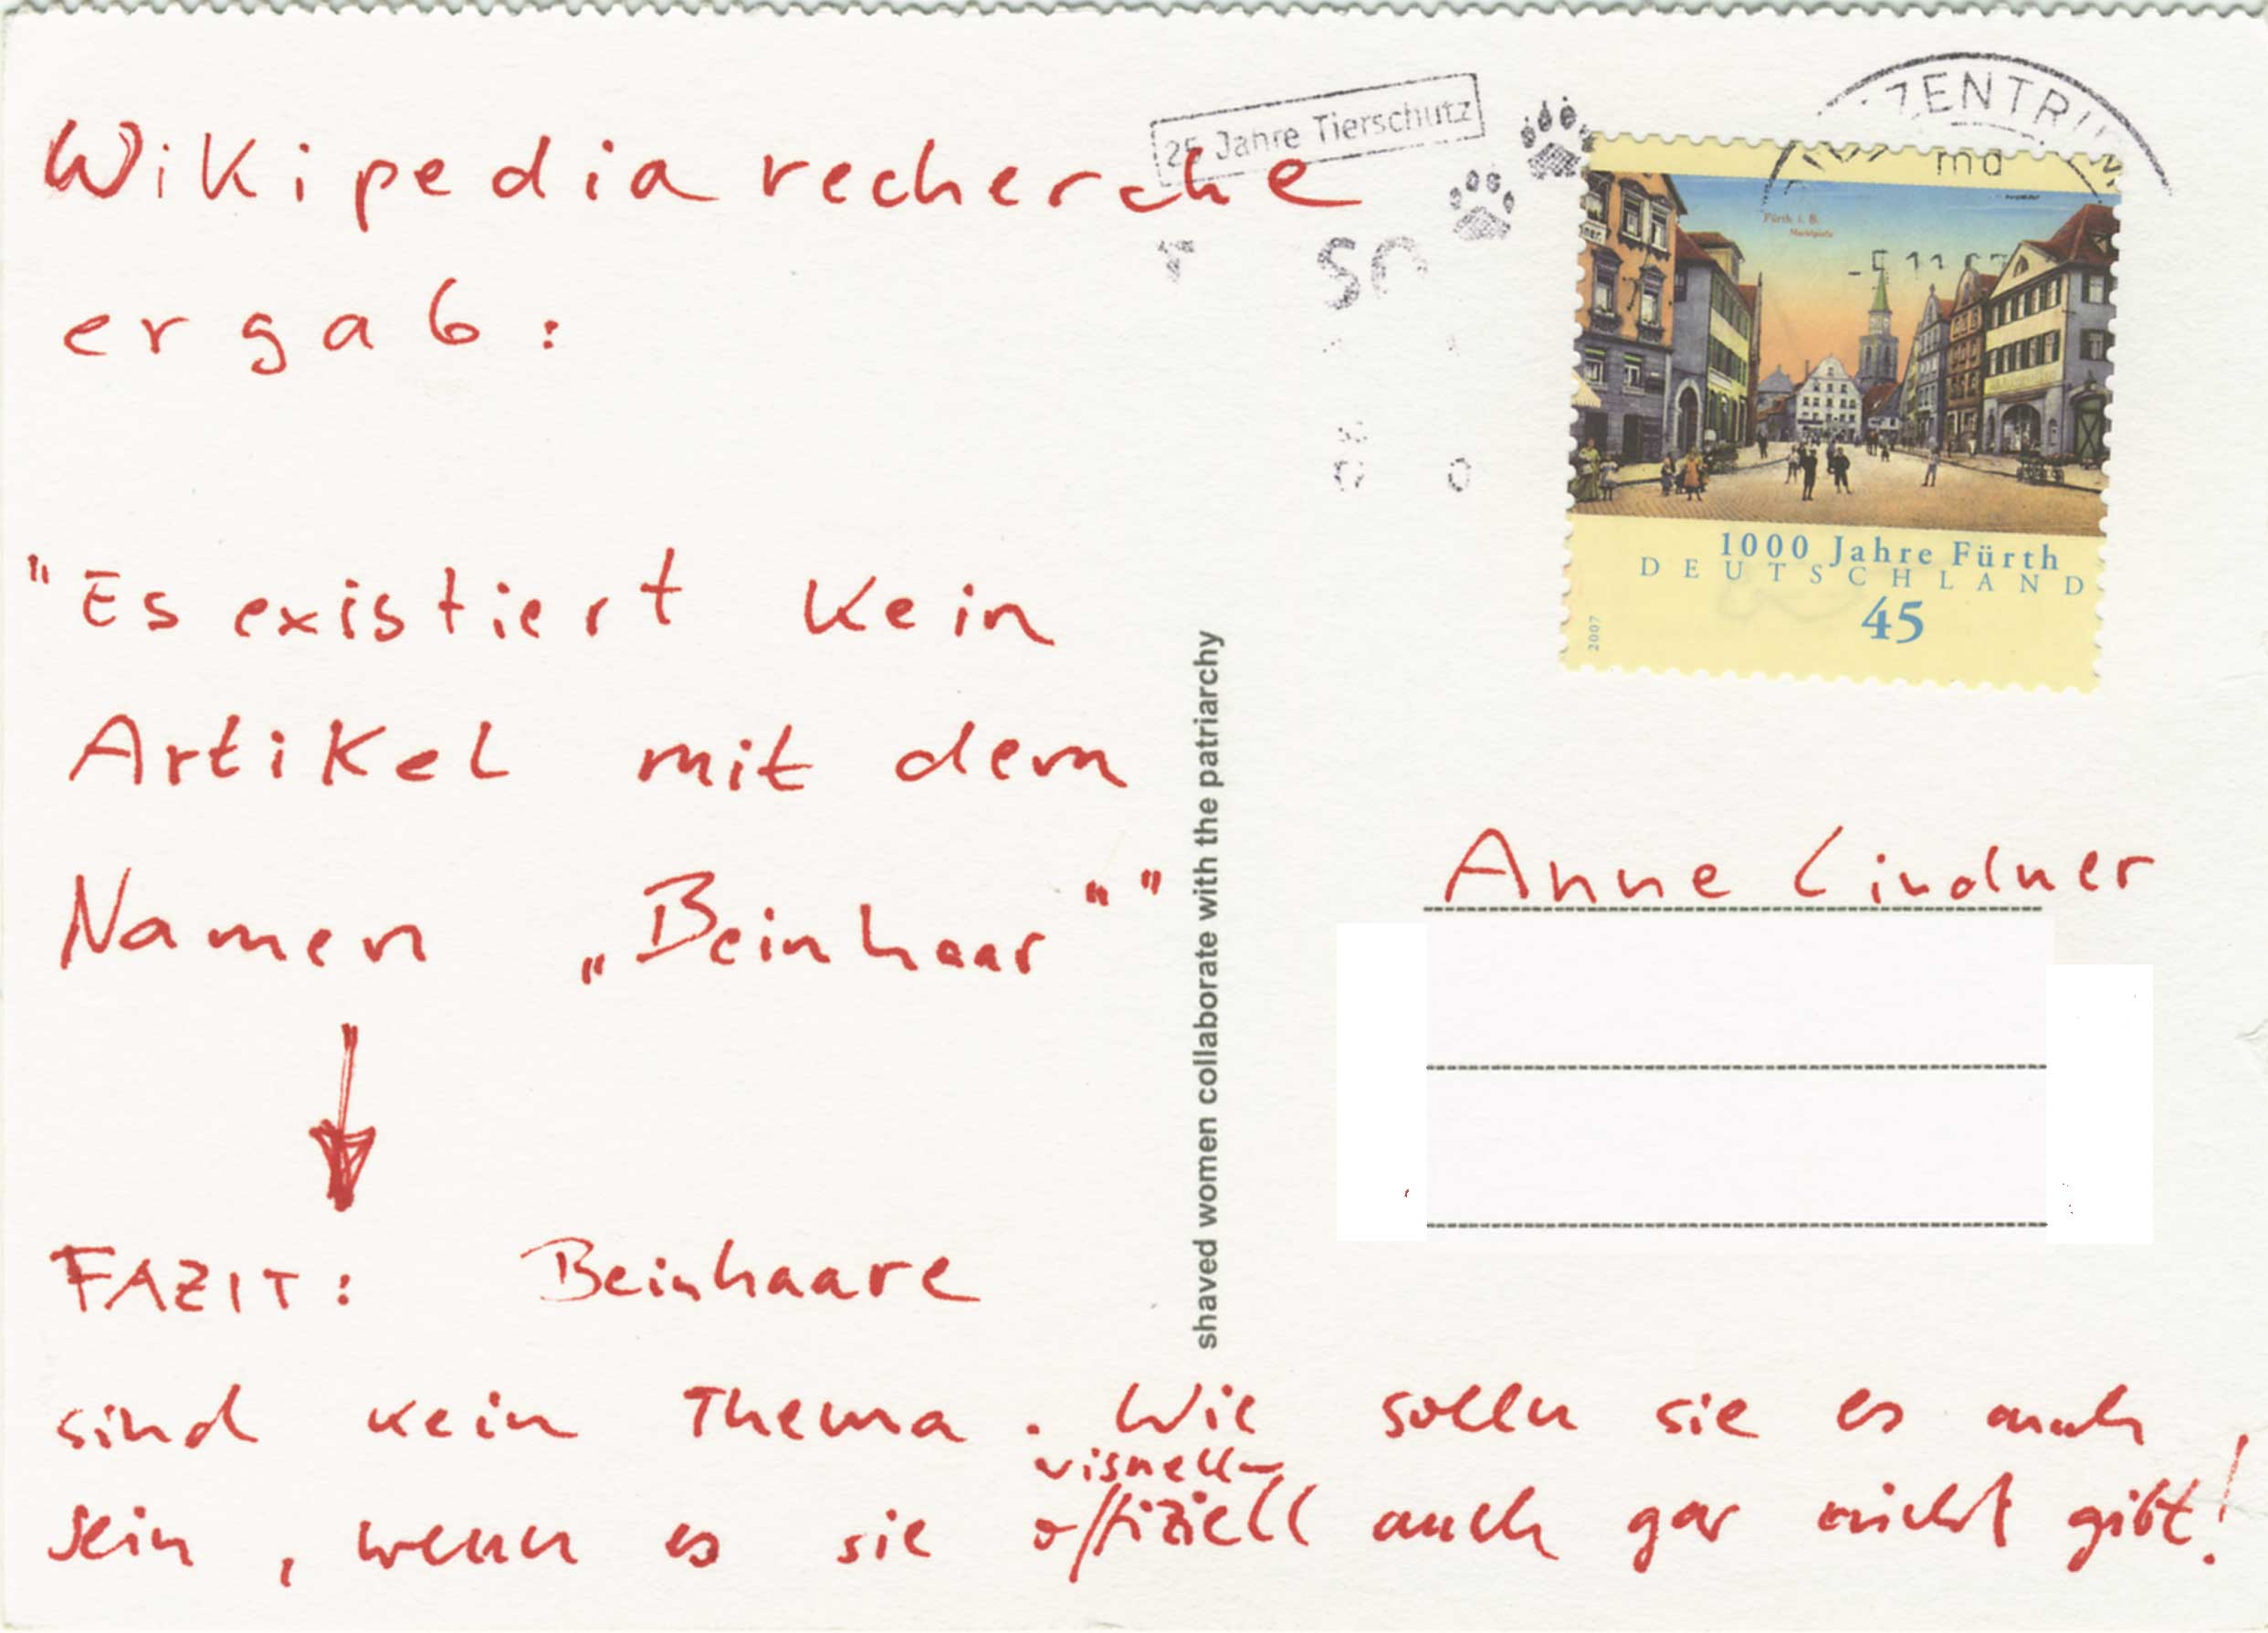 Wikipedia recherche
ergab:
"Es existiert kein
Artikel mit dem
Namen „Beinhaar“"
FAZIT: Beinhaare
sind kein Thema. Wie solln sie es auch
visuell-
sein, wenn es sie offiziell auch gar nicht gibt!
shaved women collaborate with the patriarchy
25 Jahre Tierschutz
ZENTRUM
Fürth i. B.
Marktplatz
1000 Jahre Fürth
DEUTSCHLAND
45
2007
Anne Lindner